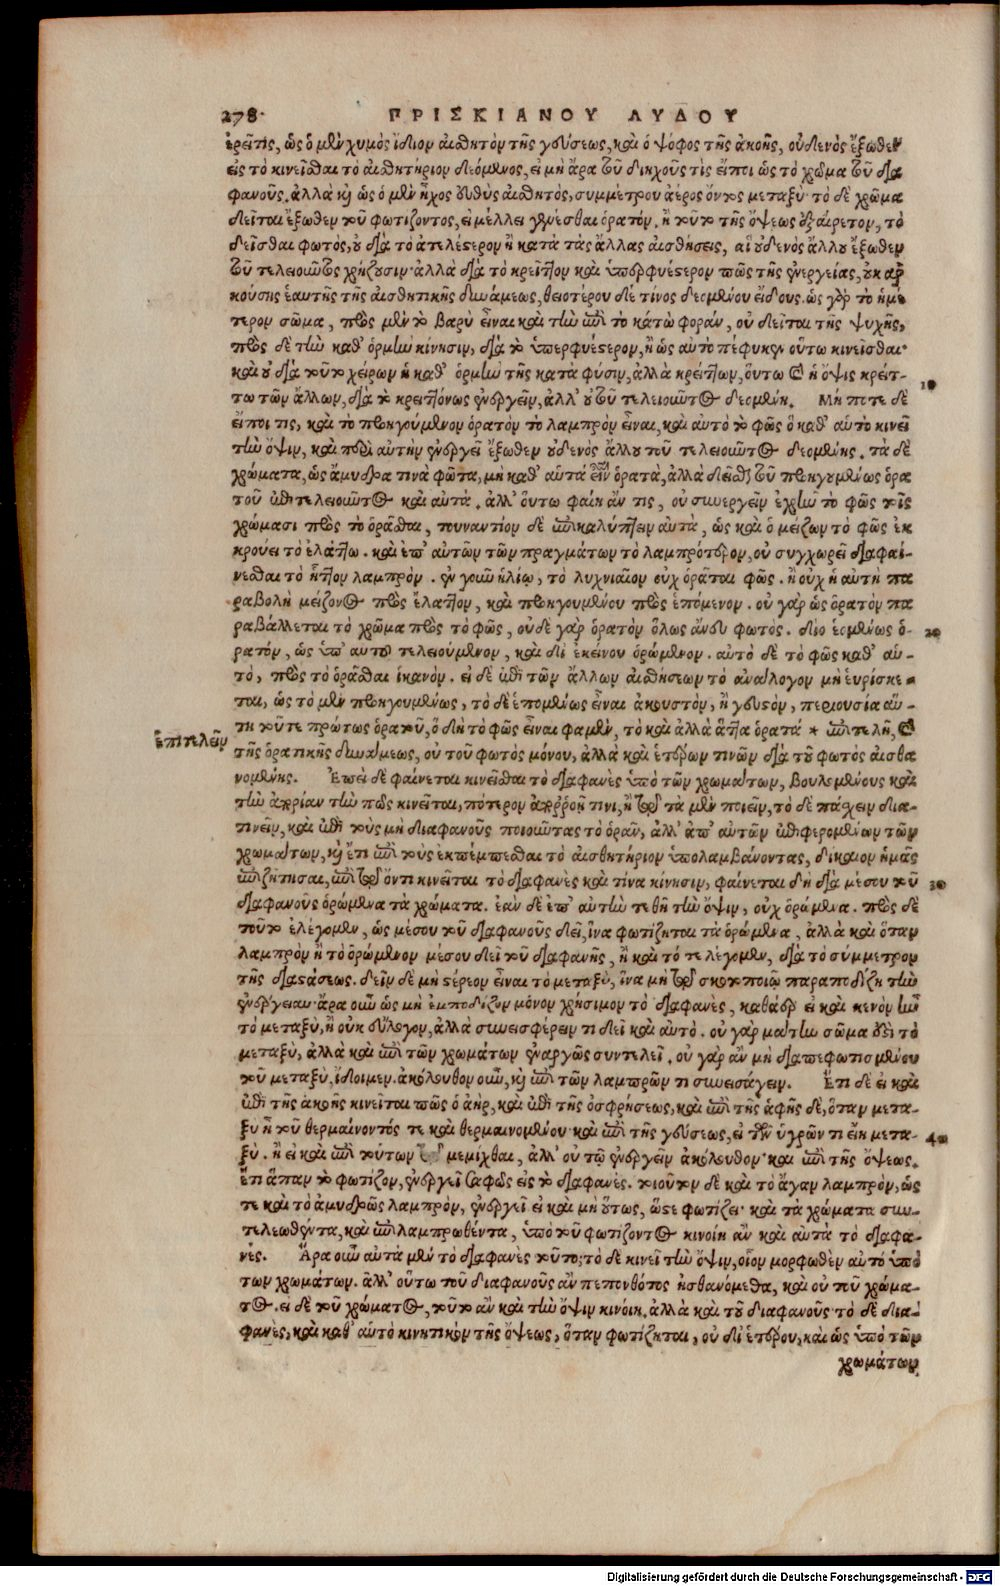 278. ΠΡΙΣΚΙΑΝΟΥ ΛΥΔΟΥ
ἐρεῖτις, ὡς ὁ μὲν χυμὸς ἴδιον αἰσθητὸν τῆς γεύσεως, καὶ ὁ ψόφος τῆς ἀκοῆς, οὐδενὸς ἔξωθεν
εἰς τὸ κινεῖσθαι τὸ αἰσθητήριον δεόμενος, εἰ μὴ ἄρα τοῦ διηχοῦς τὶς εἴποι ὡς τὸ χρῶμα τοῦ δια
φανοῦς. ἀλλὰ καὶ ὡς ὁ μὲν ἦχος εὐθὺς αἰσθητὸς, συμμέτρου ἀέρος ὄντος μεταξύ· τὸ δὲ χρῶμα
δεῖται ἔξωθεν τοῦ φωτίζοντος, εἰ μέλλει γενέσθαι ὁρατόν. ἢ τοῦτο τῆς ὄψεως ἐξαίρετον, τὸ
δεῖσθαι φωτὸς, οὐ διὰ τὸ ἀτελέστερον ἢ κατὰ τὰς ἄλλας αἰσθήσεις, αἳ οὐδενὸς ἄλλου ἔξωθεν
τοῦ τελειοῦντος χρῄζουσιν· ἀλλὰ διὰ τὸ κρεῖττον καὶ ὑπερφυέστερον πῶς τῆς ἐνεργείας, οὐκ ἀρ
κούσης ἑαυτῆς τῆς αἰσθητικῆς δυνάμεως, θειοτέρου δέ τινος δεομένου εἴδους. ὡς γὰρ τὸ ἡμέ
τερον σῶμα, πρὸς μὲν τὸ βαρὺ εἶναι καὶ τὴν ἐπὶ τὸ κάτω φοράν, οὐ δεῖται τῆς ψυχῆς,
πρὸς δὲ τὴν καθ' ὁρμὴν κίνησιν, διὰ τὸ ὑπερφυέστερον, ἢ ὡς αὐτὸ πέφυκεν οὕτω κινεῖσθαι·
καὶ οὐ διὰ τοῦτο χείρων ἡ καθ' ὁρμὴν τῆς κατὰ φύσιν, ἀλλὰ κρείττων, οὕτω καὶ ἡ ὄψις κρείτ- 10
τω τῶν ἄλλων, διὰ τὸ κρειττόνως ἐνεργεῖν, ἀλλ' οὐ τοῦ τελειοῦντος δεομένη. Μή ποτε δὲ
εἴποι τις, καὶ τὸ προηγούμενον ὁρατὸν τὸ λαμπρὸν εἶναι, καὶ αὐτὸ τὸ φῶς ὃ καθ' αὑτὸ κινεῖ
τὴν ὄψιν, καὶ περὶ αὐτὴν ἐνεργεῖ ἔξωθεν οὐδενὸς ἄλλου τοῦ τελειοῦντος δεομένης. τὰ δὲ
χρώματα, ὡς ἄμυδρα τινὰ φῶτα, μὴ καθ' αὑτὰ εἶναι ὁρατὰ, ἀλλὰ δεῖσθαι τοῦ προηγουμένως ὁρα
τοῦ ἐπιτελειοῦντος καὶ αὐτά. ἀλλ' οὕτω φαίη ἄν τις, οὐ συνεργεῖν ἐχρῆν τὸ φῶς τοῖς
χρώμασι πρὸς τὸ ὁρᾶσθαι, τουναντίον δὲ ἐπικαλύπτειν αὐτὰ, ὡς καὶ ὁ μείζων τὸ φῶς ἐκ
κρούει τὸ ἐλάττω. καὶ ἐπ' αὐτῶν τῶν πραγμάτων τὸ λαμπρότερον, οὐ συγχωρεῖ διαφαί-
νεσθαι τὸ ἧττον λαμπρόν. ἐν γοῦν ἡλίῳ, τὸ λυχνιαῖον οὐχ ὁρᾶται φῶς. ἢ οὐχ ἡ αὐτὴ πα
ραβολὴ μείζονος πρὸς ἔλαττον, καὶ προηγουμένου πρὸς ἑπόμενον. οὐ γὰρ ὡς ὁρατὸν πα
ραβάλλεται τὸ χρῶμα πρὸς τὸ φῶς, οὐδὲ γὰρ ὁρατὸν ὅλως ἄνευ φωτός. διο ἑπομένως ὁ- 20
ρατὸν, ὡς ὑπ' αυτοῦ τελειούμενον, καὶ δι' ἐκείνου ὁρώμενον. αὐτὸ δὲ τὸ φῶς καθ' αὑ-
τὸ, πρὸς τὸ ὁρᾶσθαι ἱκανόν. εἰ δὲ ἐπὶ τῶν ἄλλων αἰσθήσεων τὸ ἀνάλογον μὴ εὑρίσκε-
ται, ὡς τὸ μὲν προηγουμένως, τὸ δὲ ἑπομένως εἶναι ἀκουστὸν, ἢ γευστὸν, περιουσία αὕ-
τη τοῦτε πρώτως ὁρατοῦ, ὃ δὴ τὸ φῶς εἶναι φαμὲν, τὸ καὶ ἀλλὰ ἄττα ὁρατὰ * ἐπιτελῇ, καὶ
ἐπιτελεῖν
τῆς ὁρατικῆς δυνάμεως, οὐ τοῦ φωτὸς μόνου, ἀλλὰ καὶ ἑτέρων τινῶν διὰ τοῦ φωτὸς αἰσθα
νομένης. Ἐπεὶ δὲ φαίνεται κινεῖσθαι τὸ διαφανὲς ὑπὸ τῶν χρωμάτων, βουλομένους καὶ
τὴν αἰτίαν τὴν πῶς κινεῖται, πότερον ἀπορροῇ τινι, ἢ τῷ τὰ μὲν ποιεῖν, τὸ δὲ πάσχειν δια-
τινεῖν, καὶ ἐπὶ τοὺς μὴ διαφανοῦς ποιοῦντας τὸ ὁρᾶν, ἀλλ' ἀπ' αὐτῶν ἐπιφερομένων τῶν
χρωμάτων, καὶ ἔτι ἐπὶ τοὺς ἐκπέμπεσθαι τὸ αἰσθητήριον ὑπολαμβάνοντας, δίκαιον ἡμᾶς
ἐπιζητῆσαι, ἐπὶ τῷ ὄντι κινεῖται τὸ διαφανὲς καὶ τίνα κίνησιν, φαίνεται δὴ διὰ μέσου τοῦ 30
διαφανοῦς ὁρώμενα τὰ χρώματα. ἐὰν δὲ ἐπ' αὐτὴν τεθῇ τὴν ὄψιν, οὐχ ὁρώμενα. πρὸς δὲ
τοῦτο ἐλέγομεν, ὡς μέσου τοῦ διαφανοῦς δεῖ, ἵνα φωτίζηται τὰ ὁρώμενα, ἀλλὰ καὶ ὅταν
λαμπρὸν ᾖ τὸ ὁρώμενον μέσου δεῖ τοῦ διαφανῆς, ἢ καὶ τό τε λέγομεν, διὰ τὸ σύμμετρον
τῆς διαστάσεως. δεῖν δὲ μὴ στέρεον εἶναι τὸ μεταξὺ, ἵνα μὴ τῷ σκοτοποιῷ παραποδίζῃ τὴν
ἐνέργειαν· ἄρα οὖν ὡς μὴ ἐμποδίζον μόνον χρήσιμον τὸ διαφανὲς, καθάπερ εἰ καὶ κενὸν ἦν
τὸ μεταξὺ, ἢ οὐκ εὔλογον, ἀλλὰ συνεισφέρειν τι δεῖ καὶ αὐτό. οὐ γὰρ μάτην σῶμα ἐστὶ τὸ
μεταξὺ, ἀλλὰ καὶ ἐπὶ τῶν χρωμάτων ἐναργῶς συντελεῖ. οὐ γὰρ ἂν μὴ διαπεφωτισμένου
τοῦ μεταξὺ, ἴδοιμεν. ἀκόλουθον οὖν, καὶ ἐπὶ τῶν λαμπρῶν τι συνεισάγειν. Ἔτι δὲ εἰ καὶ
ἐπὶ τῆς ἀκοῆς κινεῖται πῶς ὁ ἀὴρ, καὶ ἐπὶ τῆς ὀσφρήσεως, καὶ ἐπὶ τῆς ἁφῆς δὲ, ὅταν μετα-
ξὺ ᾖ τοῦ θερμαίνοντός τε καὶ θερμαινομένου· καὶ ἐπὶ τῆς γεύσεως, εἰ τῶν ὑγρῶν τι εἴη μετα- 40
ξύ. ἢ εἰ καὶ ἐπὶ τούτων τῷ μεμίχθαι, ἀλλ' οὐ τῷ ἐνεργεῖν ἀκόλουθον· καὶ ἐπὶ τῆς ὄψεως.
Ἔτι ἅπαν τὸ φωτίζον, ἐνεργεῖ σαφῶς εἰς τὸ διαφανές. τοιοῦτον δὲ καὶ τὸ ἄγαν λαμπρὸν, ὡς
τε καὶ τὸ ἀμυδρῶς λαμπρὸν, ἐνεργεῖ εἰ καὶ μὴ οὕτως, ὥστε φωτίζει· καὶ τὰ χρώματα συν-
τελεωθέντα, καὶ ἐπιλαμπρωθέντα, ὑπὸ τοῦ φωτίζοντος κινοίη ἂν καὶ αὐτὰ τὸ διαφα-
νές. Ἄρα οὖν αὐτὰ μὲν τὸ διαφανὲς τοῦτο; τὸ δὲ κινεῖ τὴν ὄψιν, οἷον μορφωθὲν αὐτὸ ὑπὸ
των χρωμάτων. ἀλλ' οὕτω τοῦ διαφανοῦς ἂν πεπονθότος ᾐσθανόμεθα, καὶ οὐ τοῦ χρώμα-
τος. εἰ δὲ τοῦ χρώματος, τοῦτο ἂν καὶ τὴν ὄψιν κινοίη, ἀλλὰ καὶ τοῦ διαφανοῦς τὸ δὲ δια-
φανὲς, καὶ καθ' αὑτὸ κινητικὸν τῆς ὄψεως, ὅταν φωτίζηται, οὐ δι' ἑτέρου, καὶ ὡς ὑπὸ τῶν
χρωμάτων
Digitalisierung gefördert durch die Deutsche Forschungsgemeinschaft - DFG